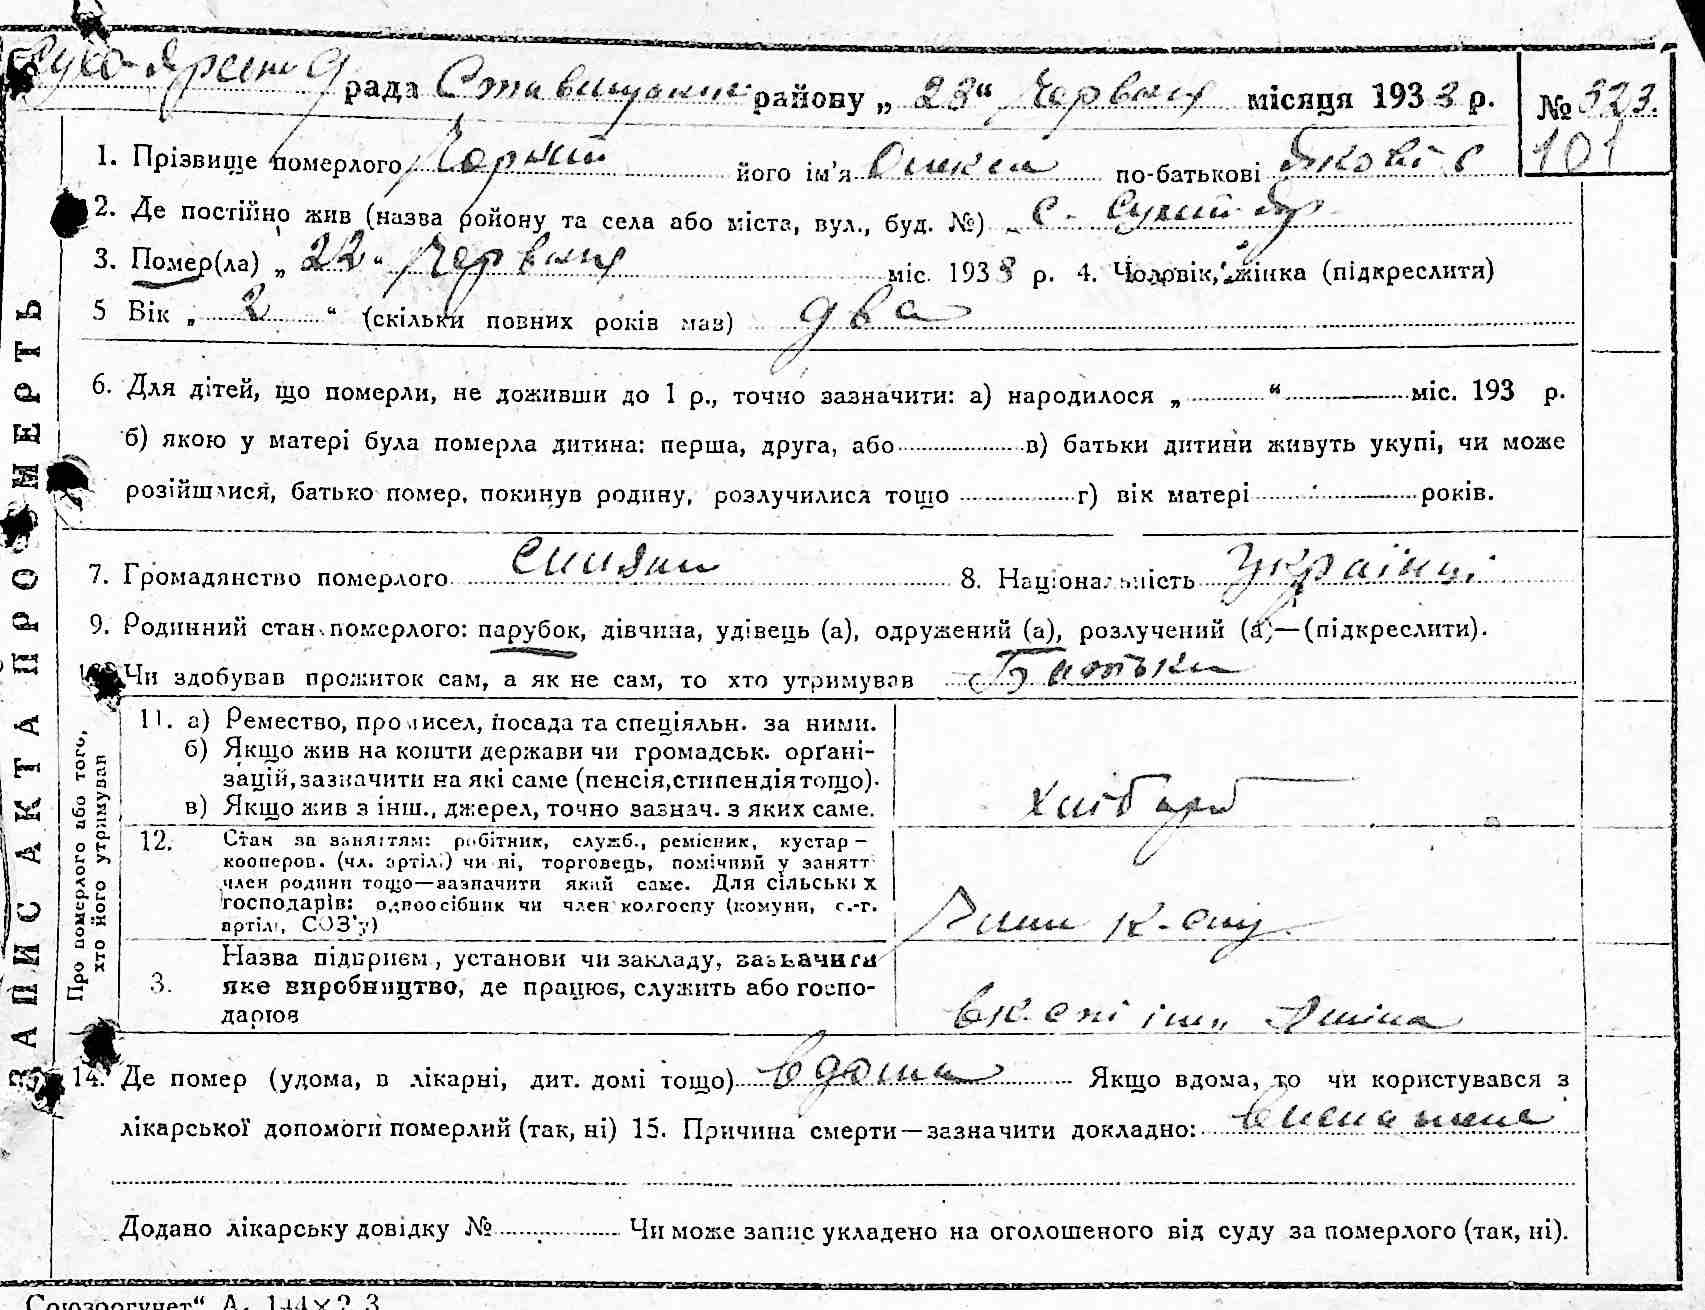 рада Ставищанськ району „ 23“ Червня місяця 1933 р. № 323.
101
1. Прізвище померлого Чорний його ім'я по-батькові Яковів
2. Де постійно жив (назва ройону та села або міста, вул., буд. №) с. Сухий Яр
3. Помер(ла) „ 22“ Червня міс. 1933 р. 4. Чоловік, жінка (підкреслити)
5 Вік „ 2 “ (скільки повних років мав) два
6. Для дітей, що померли, не доживши до 1 р., точно зазначити: а) народилося „ “ міс. 193 р.
б) якою у матері була померла дитина: перша, друга, або в) батьки дитини живуть укупі, чи може
розійшлися, батько помер, покинув родину, розлучилися тощо г) вік матері років.
7. Громадянство померлого 8. Національність Україінці
9. Родинний стан померлого: парубок, дівчина, удівець (а), одружений (а), розлучений (а)—(підкреслити).
Чи здобував прожиток сам, а як не сам, то хто утримував Батьки
11. а) Ремество, промисел, посада та спеціяльн. за ними.
б) Якщо жив на кошти держави чи громадськ. орґані-
зацій, зазначити на які саме (пенсія, стипендія тощо).
в) Якщо жив з інш., джерел, точно зазнач. з яких саме.
Хлібороб
12. Стан за заняттям: робітник, служб., ремісник, кустар —
кооперов. (чл. артіл.) чи ні, торговець, помічний у занятт
член родини тощо—зазначити який саме. Для сільських
господарів: одноосібник чи член колгоспу (комуни, с.-г.
артіл., СОЗ'у)
Член к-спу
3. Назва підприєм., установи чи закладу, зазначити
яке виробництво, де працює, служить або госпо-
дарює
в к. спі ім.
14. Де помер (удома, в лікарні, дит. домі тощо) вдома Якщо вдома, то чи користувався з
лікарської допомоги померлий (так, ні) 15. Причина смерти—зазначити докладно: виснаження
Додано лікарську довідку № Чи може запис укладено на оголошеного від суду за померлого (так, ні).
ЗАПИС АКТА ПРО СМЕРТЬ
Про померлого або того,
хто його утримував